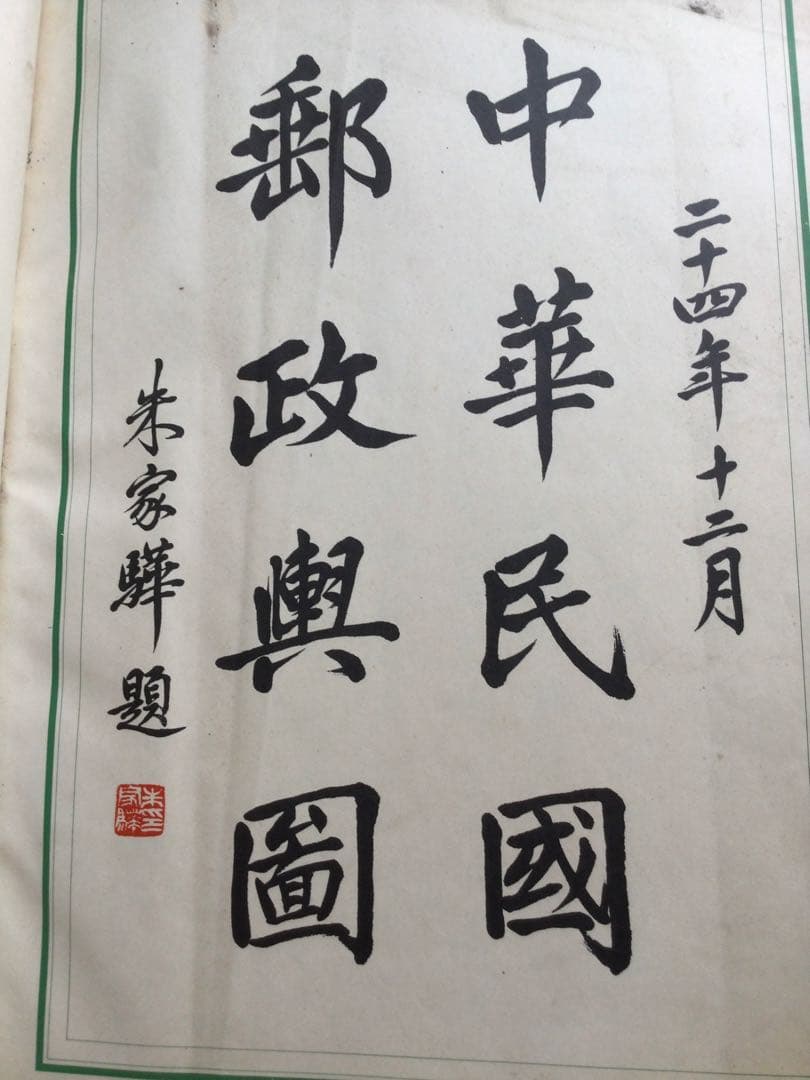 二十四年十二月
中華民國
郵政輿圖
朱家驊題